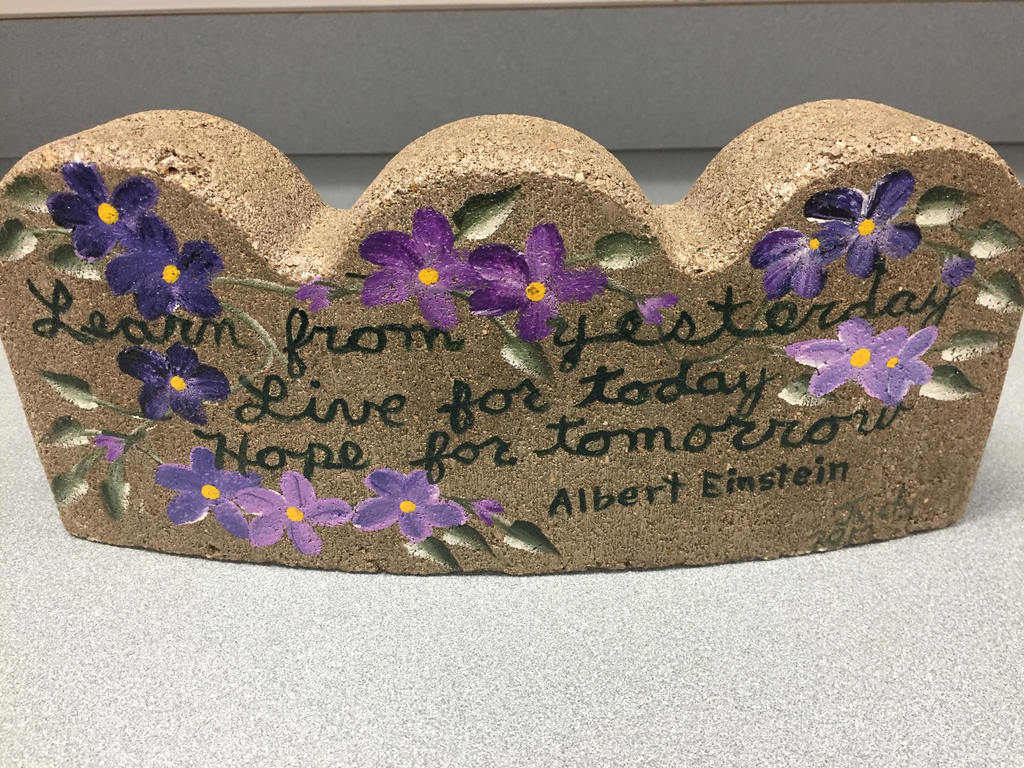 Learn from yesterday
Live for today
Hope for tomorrow
Albert Einstein